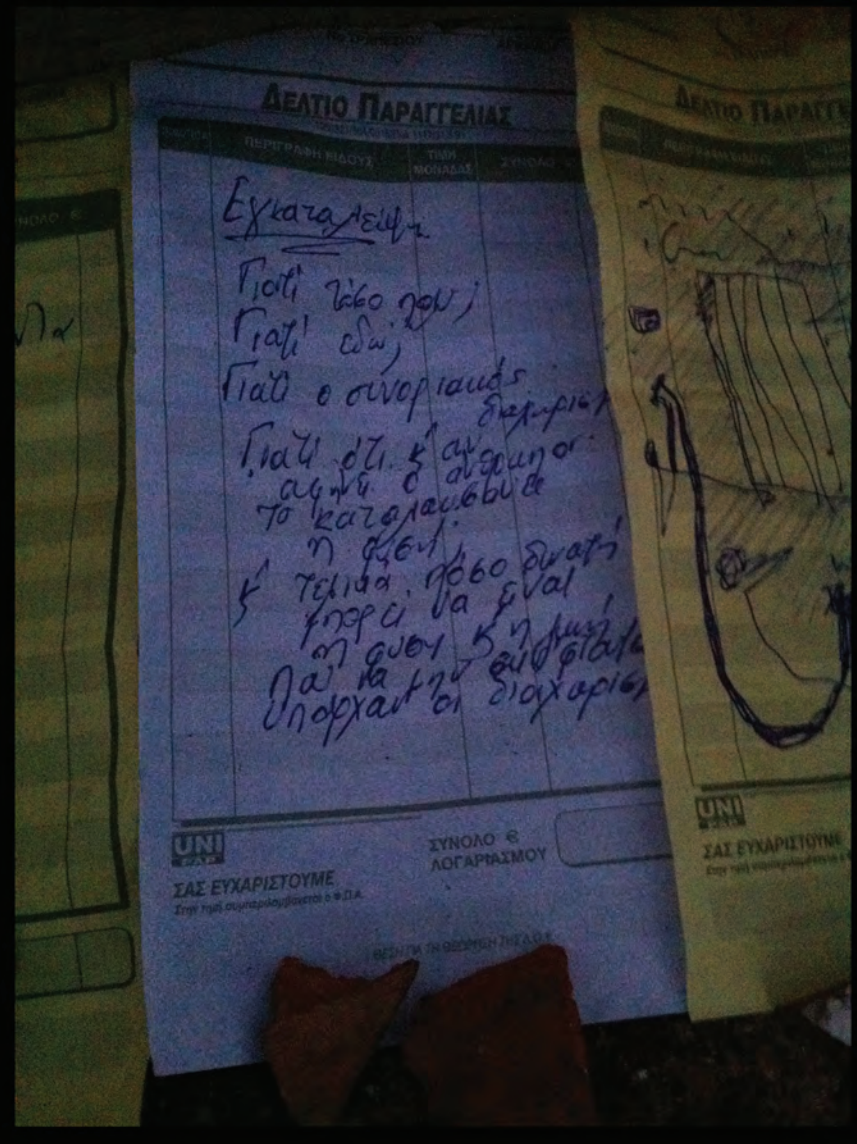 ΔΕΛΤΙΟ ΠΑΡΑΓΓΕΛΙΑΣ
ΠΕΡΙΓΡΑΦΗ ΕΙΔΟΥΣ ΤΙΜΗ ΜΟΝΑΔΑΣ ΣΥΝΟΛΟ
Εγκαταλείψη
Γιατί τόσο πολύ;
Γιατί εδώ;
Γιατί ο συνοριακός
διαχωρισμ
Γιατί ότι κ' αν
αφήνει ο άνθρωπος
το καταλαμβάνει
η φύση;
κ' τελικά πόσο δυνατή
μπορεί να είναι
η φύση κ' η
για να
υπάρχουν οι διαχωρισμ
UNI
PAP
ΣΥΝΟΛΟ €
ΛΟΓΑΡΙΑΣΜΟΥ
ΣΑΣ ΕΥΧΑΡΙΣΤΟΥΜΕ
Στην τιμή συμπεριλαμβάνεται ο Φ.Π.Α.
ΘΕΣΗ ΓΙΑ ΤΗ ΘΕΩΡΗΣΗ ΤΗΣ Δ.Ο.Υ.
ΝΟΛΟ €
ΔΕΛΤΙΟ ΠΑΡΑΓΓΕ
ΠΕΡΙΓΡΑΦΗ ΕΙΔΟΥΣ
UNI
PAP
ΣΑΣ ΕΥΧΑΡΙΣΤΟΥΜΕ